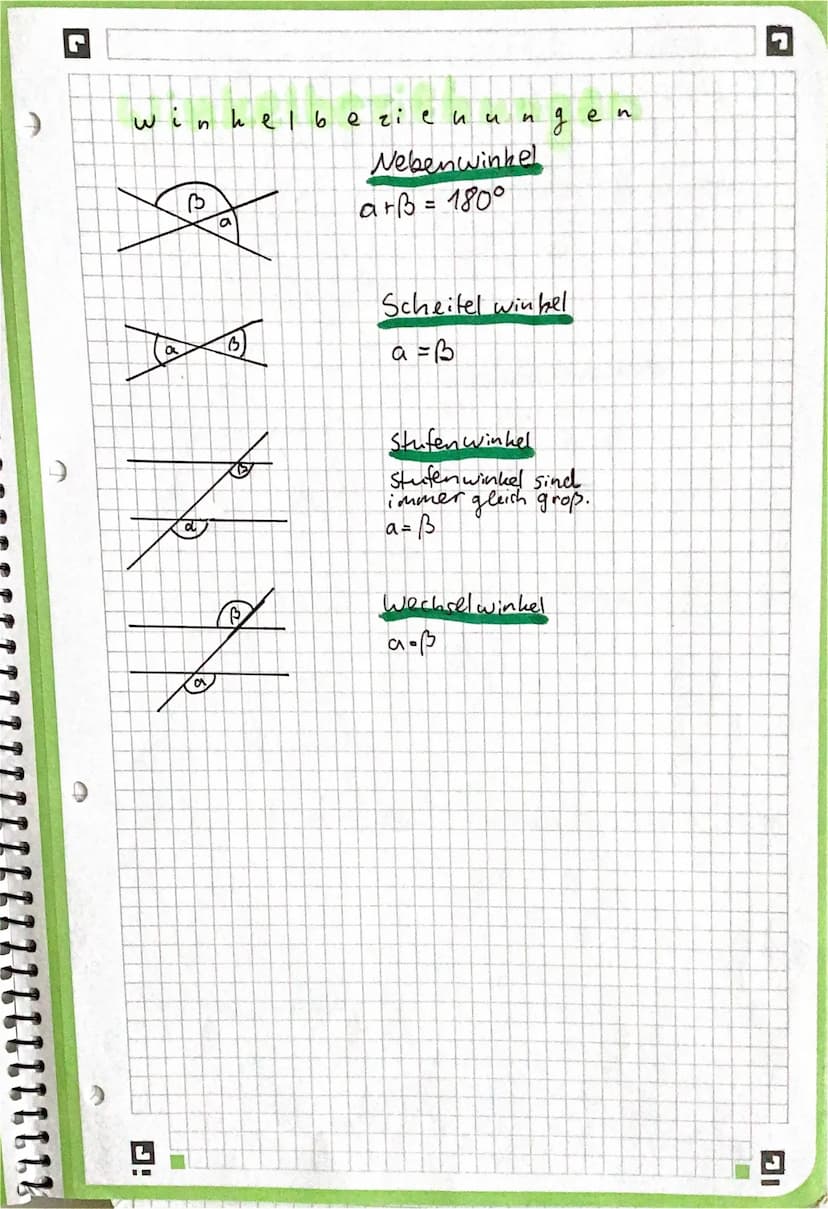 Winkelbeziehungen
Nebenwinkel
β
a
a+β = 180°
Scheitelwinkel
a
β
a = β
Stufenwinkel
β
Stufenwinkel sind
immer gleich groß.
α
a = β
Wechselwinkel
β
a = β
a